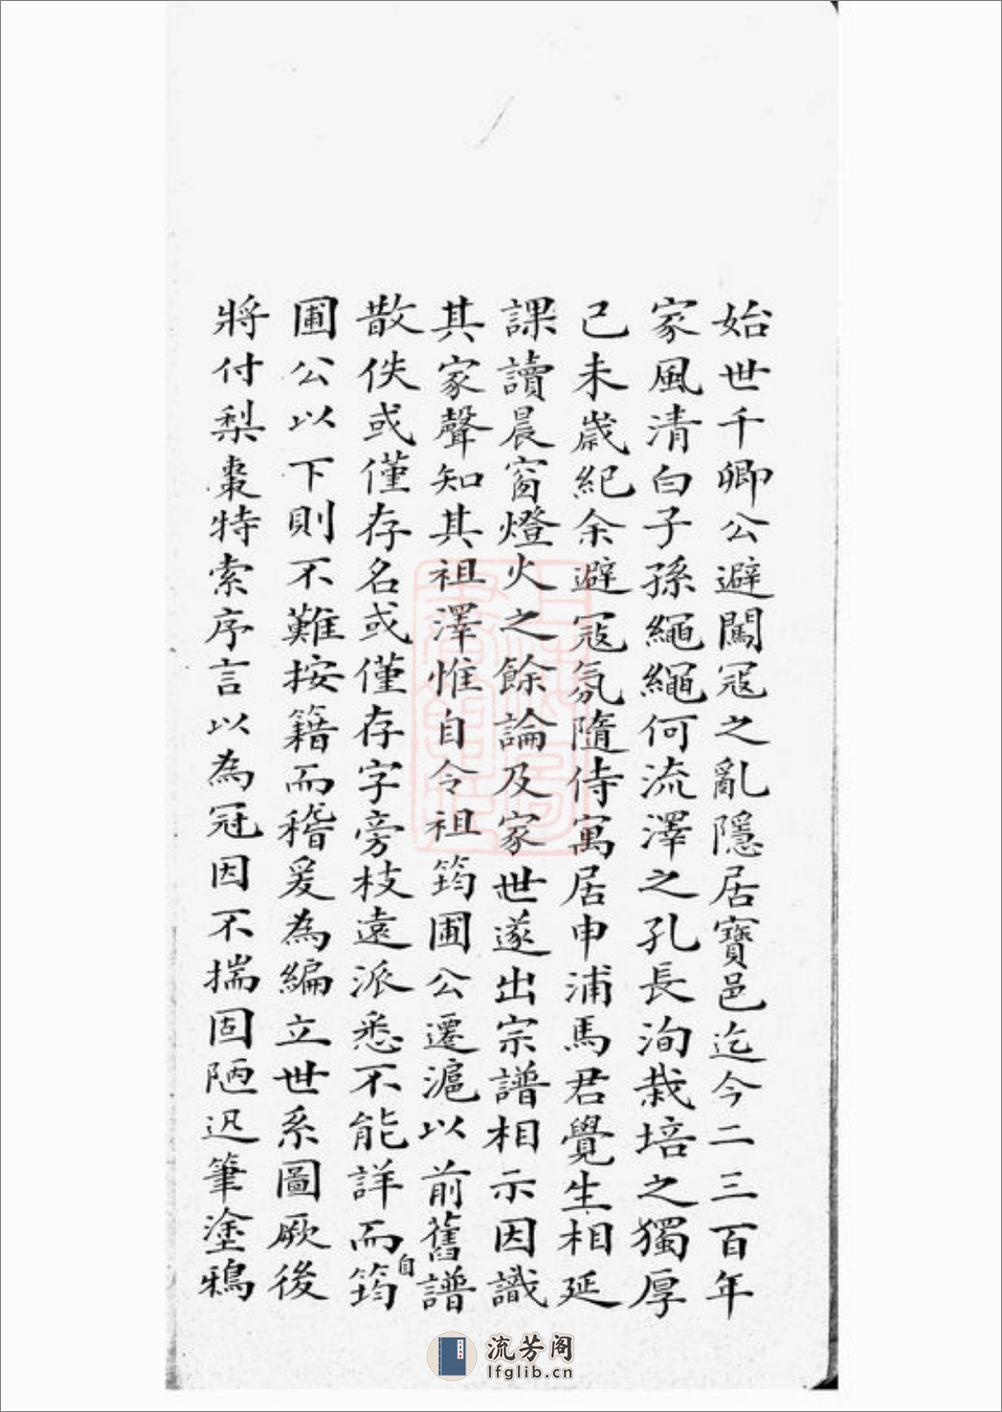 始世千卿公避闖冦之亂隱居寶邑迄今二三百年
家風清白子孫繩繩何流澤之孔長洵栽培之獨厚
己未歲紀余避冦氛隨侍寓居申浦馬君覺生相延
課讀晨窗燈火之餘論及家世遂出宗譜相示因識
其家聲知其祖澤惟自令祖筠圃公遷滬以前舊譜
散佚或僅存名或僅存字旁枝遠派悉不能詳而自筠
圃公以下則不難按籍而稽爰為編立世系圖厥後
將付梨棗特索序言以為冠因不揣固陋迅筆塗鴉
流芳阁
lfglib.cn